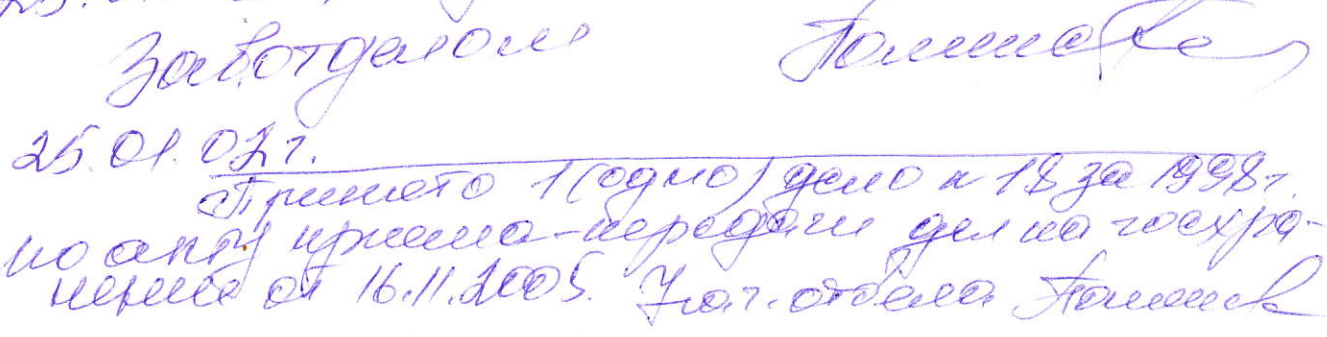 Зав.отделом
25.01.07 г.
Принято 1 (одно) дело н 18 за 1998 г.
по акту приема-передачи дел на госхра-
нение от 16.11.2005. Нач. отдела